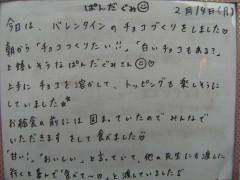 ぱんだぐみ☺ 2月14日(月)
今日は、バレンタインのチョコづくりをしました♡
朝から「チョコつくりたい!!」「白いチョコもある?」
と嬉しそうなぱんだぐみさん☺
上手にチョコを溶かして、トッピングも楽しそうに
していました★
お給食の前には固まっていたのでみんなで
いただきますをして食べました♡
「甘い!」「おいしい」と言っていて、他の先生にも渡しに
行くと喜んで"食べて〜♡"と渡していました♪